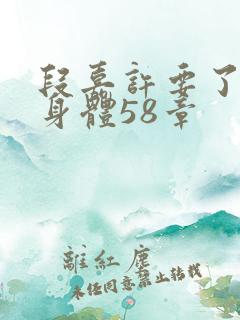 段嘉許要了
身體58章
離紅塵
未经同意禁止转载